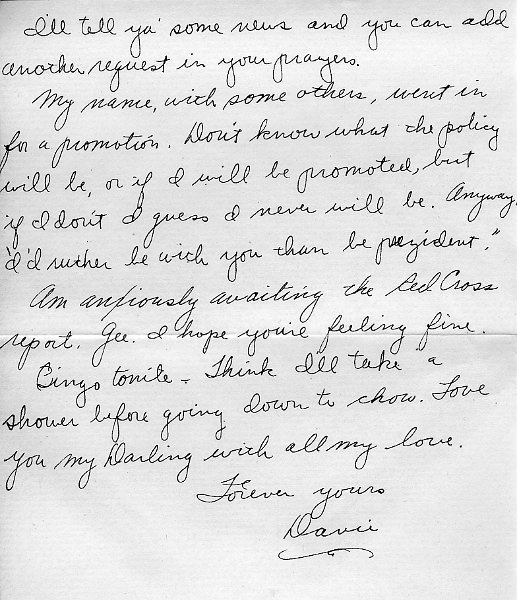 I'll tell ya' some news and you can add
another request in your prayers.
My name, with some others, went in
for a promotion. Don't know what the policy
will be, or if I will be promoted, but
if I don't I guess I never will be. Anyway.
"I'd ruther be with you than be prezident."
Am anxiously awaiting the Red Cross
report. Gee. I hope you're feeling fine.
Bingo tonite - Think I'll take a
shower before going down to chow. Love
you my Darling with all my love.
Forever yours
Davie